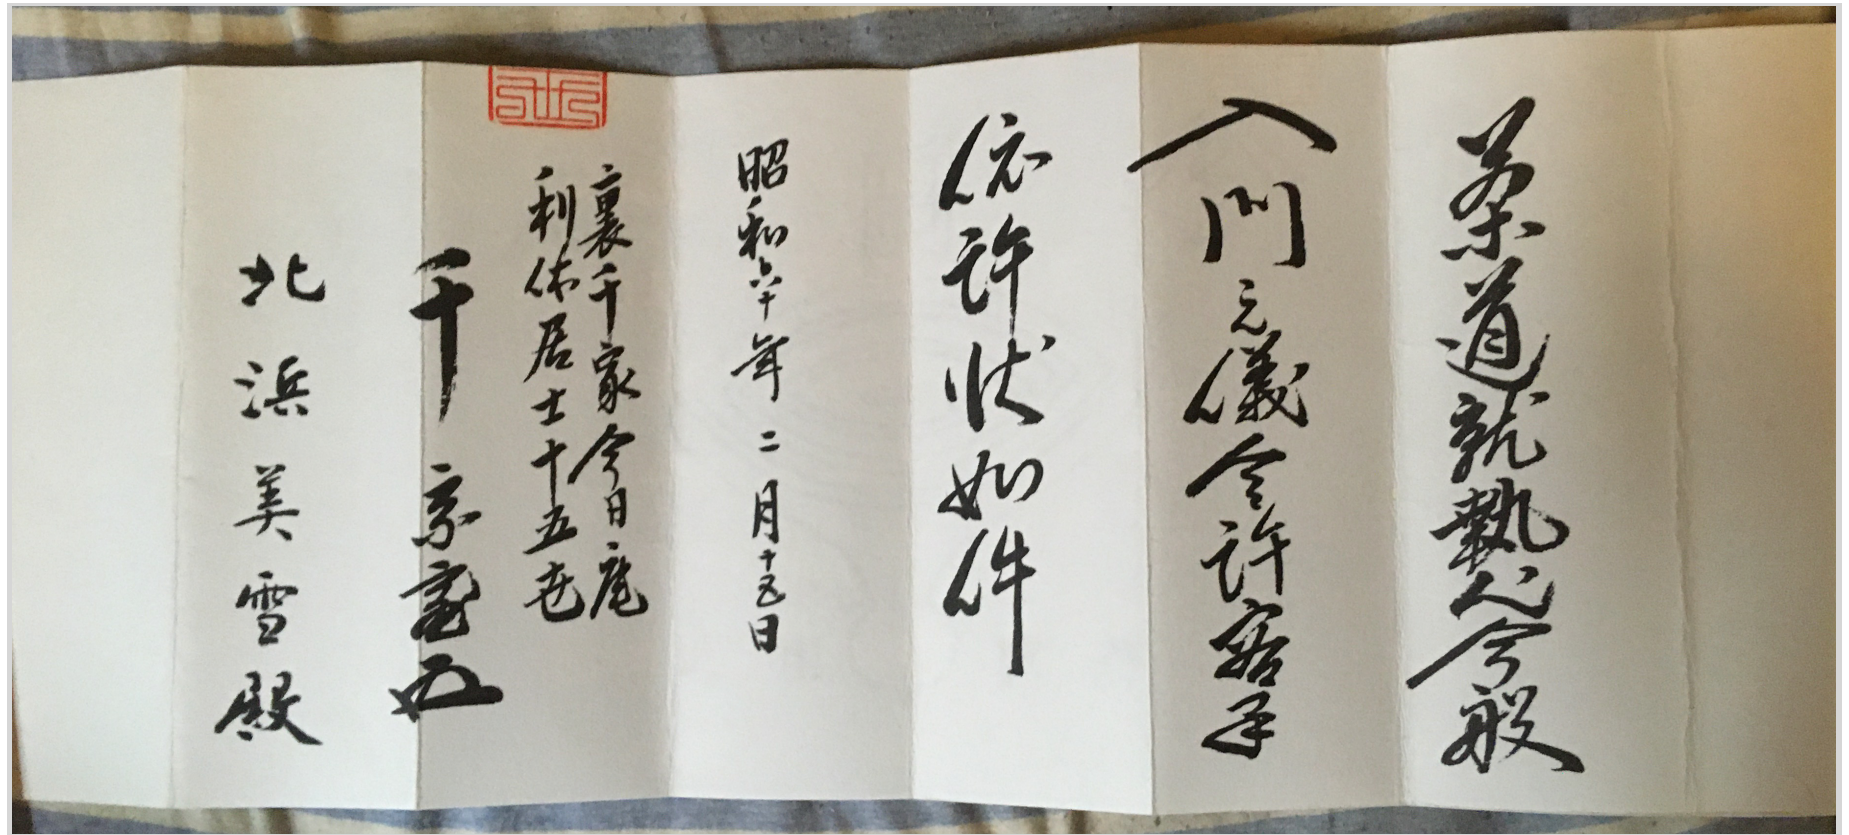 茶道就執心今般
入門之儀令許容畢
依許状如件
昭和六十年二月十五日
裏千家今日庵
利休居士十五世
千宗室
北浜美雪殿